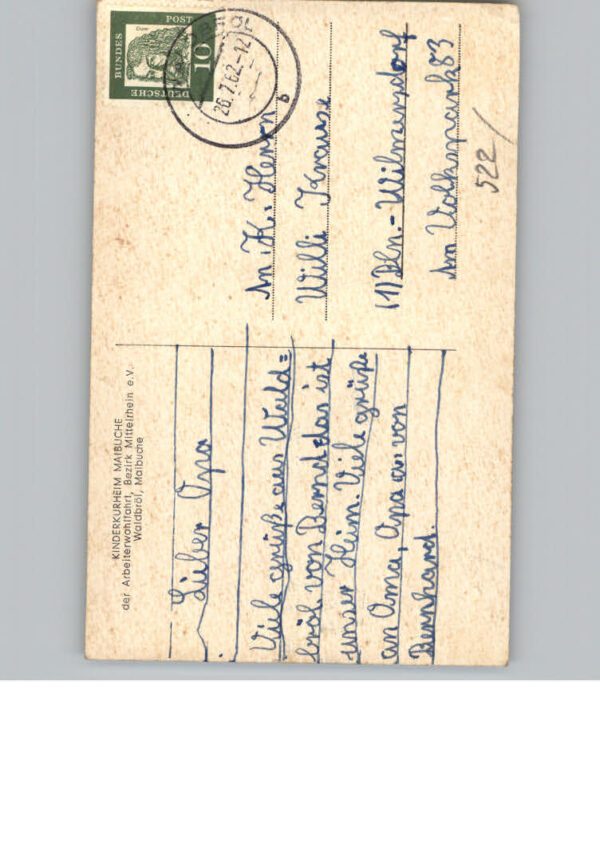 KINDERKURHEIM MAIBUCHE
der Arbeiterwohlfahrt, Bezirk Mittelrhein e.V.
Waldbröl, Maibuche
Lieber Opa
Viele grüße aus Wald=
bröl von Bernd das ist
unser Heim. Viele grüße
an Oma, Opa an von
Bernhard.
DEUTSCHE
BUNDES
POST
10
26.7.62-12
b
An. H. Herrn
Willi Krause
(1) Bln.-Wilmersdorf
Am Volkspark 83
522/